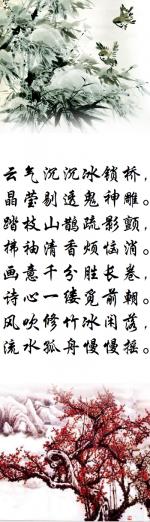 云气沉沉冰锁桥，
晶莹剔透鬼神雕。
踏枝山鹊疏影颤，
拂袖清香烦恼消。
画意千分胜长卷，
诗心一缕觅前朝。
风吹修竹冰闲落，
流水孤舟慢慢摇。